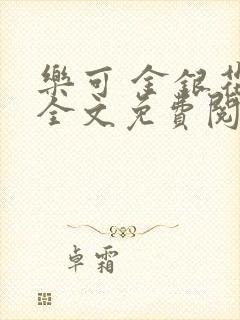 樂可 金銀花
全文免費閱
卓霜